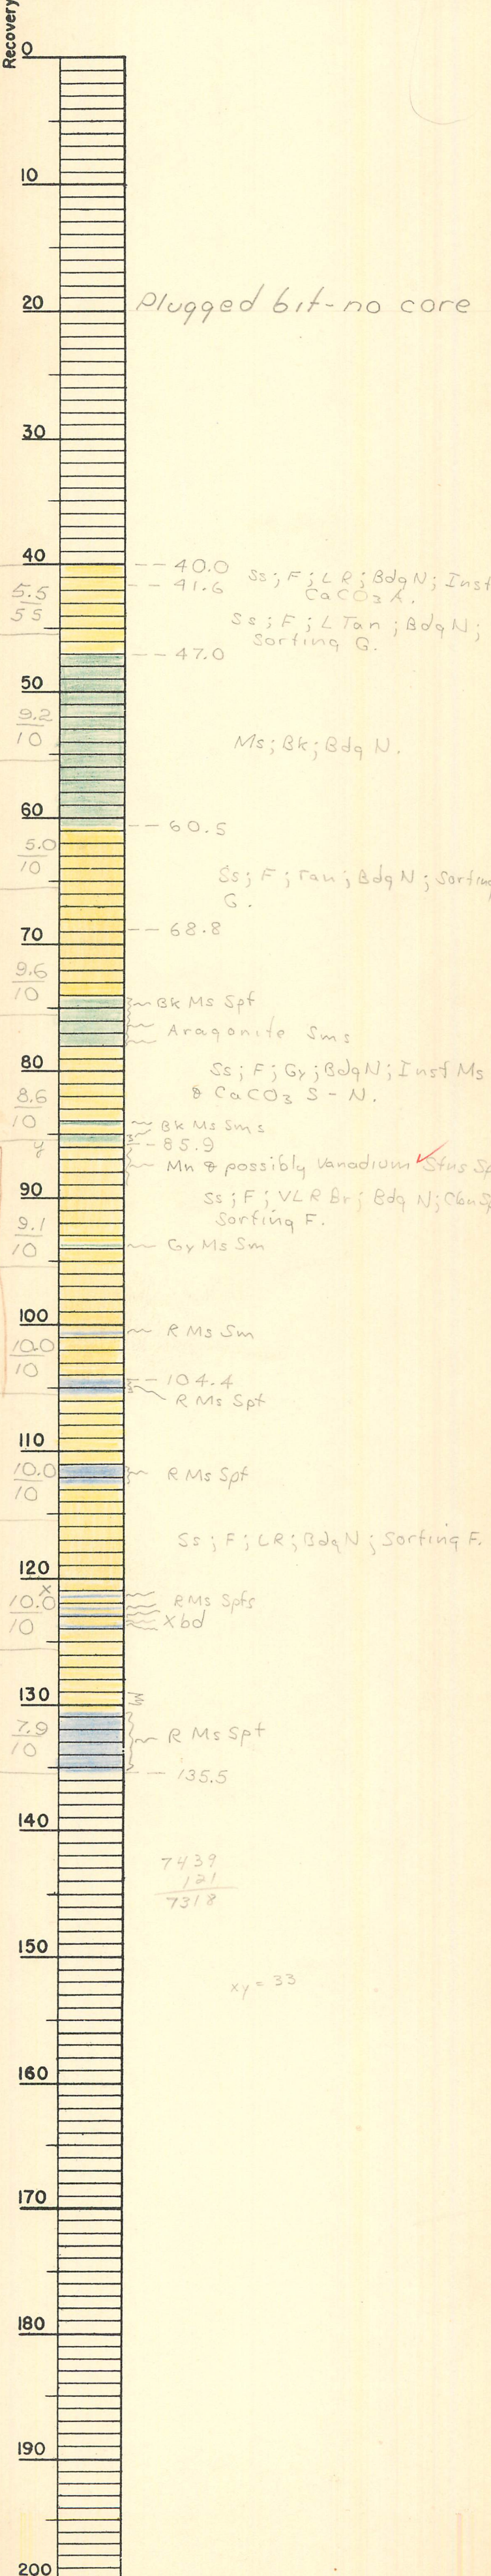 Recovery
0
10
Plugged bit - no core
20
30
40
-- 40.0
-- 41.6
Ss; F; LR; Bdg N; Inst
CaCO3 A.
5.5
55
Ss; F; L Tan; Bdg N;
Sorting G.
-- 47.0
50
9.2
10
Ms; Bk; Bdg N.
60
-- 60.5
5.0
10
Ss; F; Tan; Bdg N; Sorting
G.
70
-- 68.8
9.6
10
Bk Ms Spt
Aragonite Sms
80
Ss; F; Gy; Bdg N; Inst Ms
& CaCO3 S - N.
8.6
10
Bk Ms Sms
-- 85.9
y
Mn & possibly Vanadium Stns Sp
90
Ss; F; VLR Br; Bdg N; Cbn Sp
Sorting F.
9.1
10
Gy Ms Sm
100
R Ms Sm
10.0
10
-- 104.4
R Ms Spt
110
10.0
10
R Ms Spt
Ss; F; LR; Bdg N; Sorting F.
120
x
10.0
10
R Ms Spts
X bd
130
7.9
10
R Ms Spt
-- 135.5
140
7439
121
7318
150
xy = 33
160
170
180
190
200